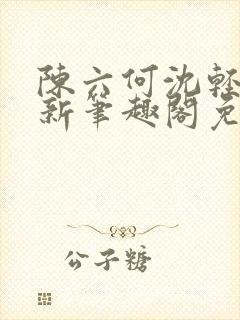 陳六何沈輕
新筆趣閣免
公子糖